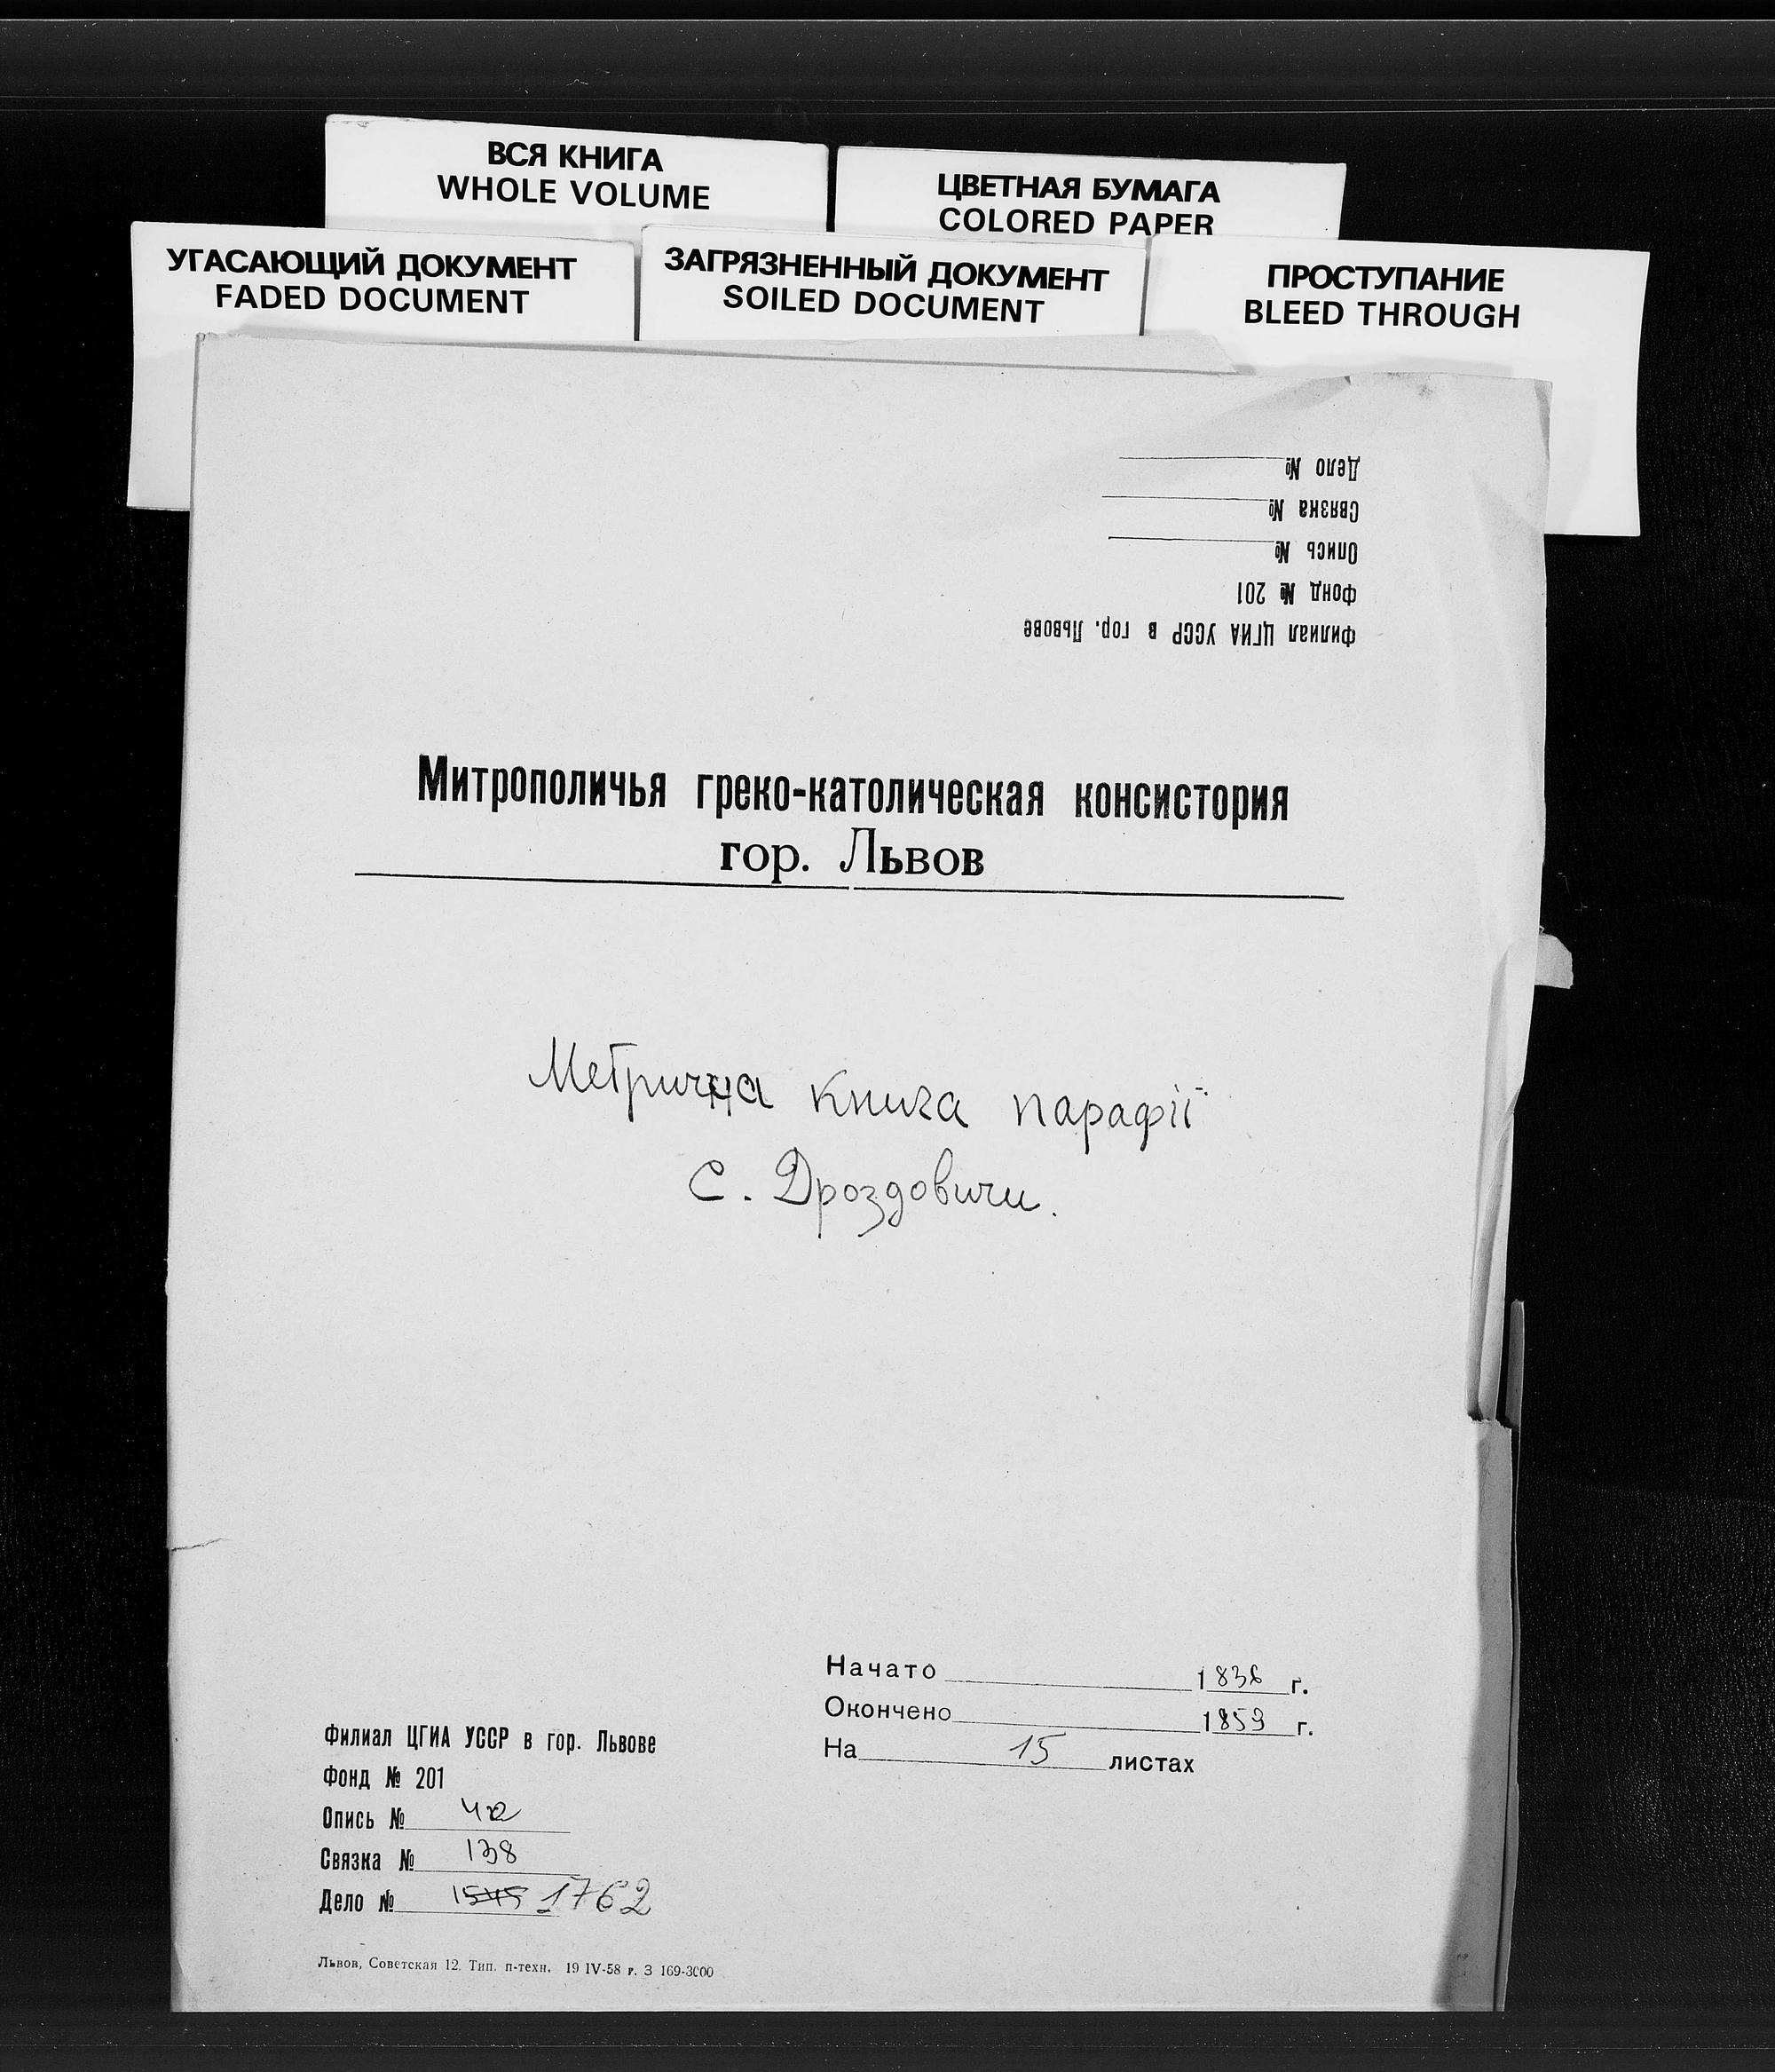 ВСЯ КНИГА
WHOLE VOLUME
ЦВЕТНАЯ БУМАГА
COLORED PAPER
УГАСАЮЩИЙ ДОКУМЕНТ
FADED DOCUMENT
ЗАГРЯЗНЕННЫЙ ДОКУМЕНТ
SOILED DOCUMENT
ПРОСТУПАНИЕ
BLEED THROUGH
Филиал ЦГИА УССР в гор. Львове
Фонд № 201
Опись №
Связка №
Дело №
Митрополичья греко-католическая консистория
гор. Львов
Метрична книга парафії
С. Дроздовичи.
Начато 1836 г.
Окончено 1859 г.
На 15 листах
Филиал ЦГИА УССР в гор. Львове
Фонд № 201
Опись № 4а
Связка № 138
Дело № 1545 1762
Львов, Советская 12. Тип. п-техн. 19 IV-58 г. З 169-3000